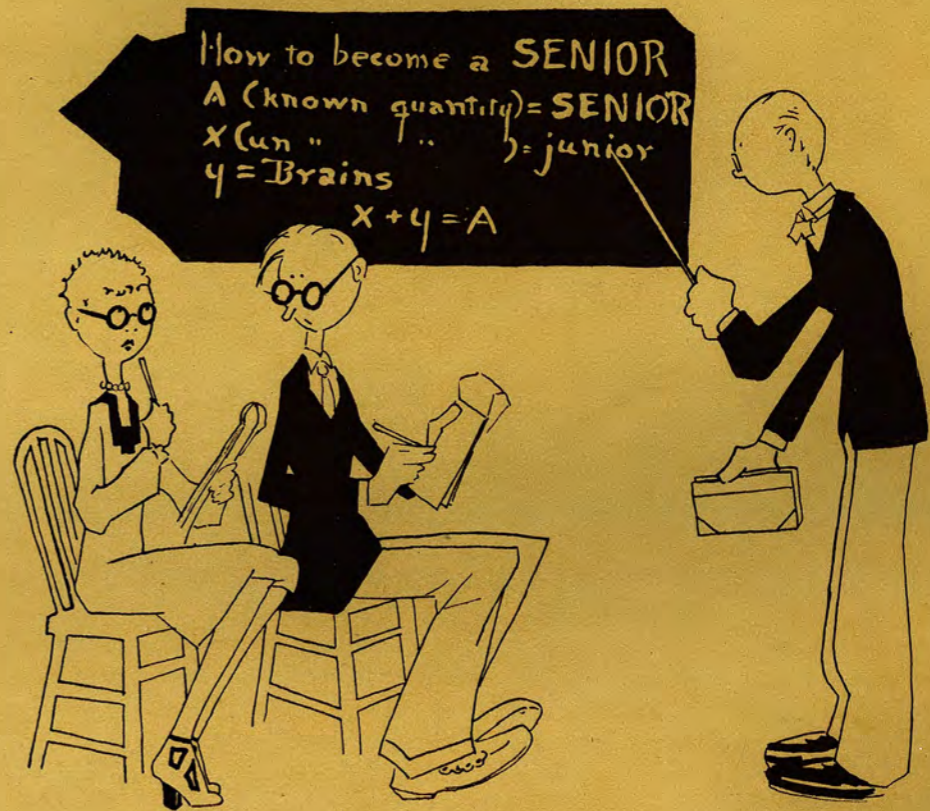 How to become a SENIOR
A (known quantity) = SENIOR
X (un " " ) = junior
y = Brains
X + y = A